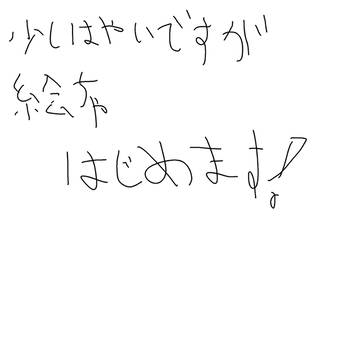 少しはやいですが
絵ちゃ
はじめます!